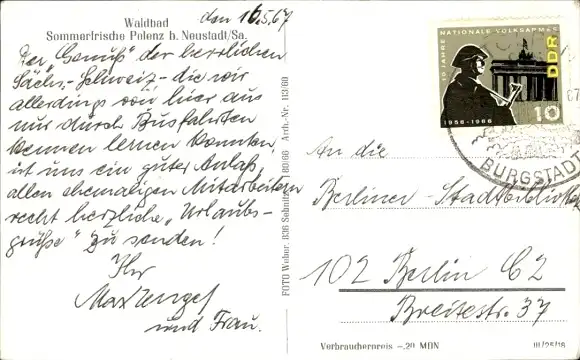 Waldbad
Sommerfrische Polenz b. Neustadt/Sa.
den 16.5.67
Der "Genuß" der herrlichen
Sächs.-Schweiz - die wir
allerdings von hier aus
nur durch Busfahrten
kennen lernen konnten,
ist uns ein guter Anlaß,
allen ehemaligen Mitarbeitern
recht herzliche "Urlaubs-
grüße" zu senden!
Ihr
Max Zengel
und Frau.
FOTO Weber, 836 Sebnitz 180/66 Arch.-Nr. 113/60
10 JAHRE NATIONALE VOLKSARMEE
DDR
1956-1966
10
67
BURGSTADT
An die
Berliner-Stadtbibliothek
102 Berlin C2
Breitestr. 37
Verbraucherpreis -,20 MDN
III/25/18